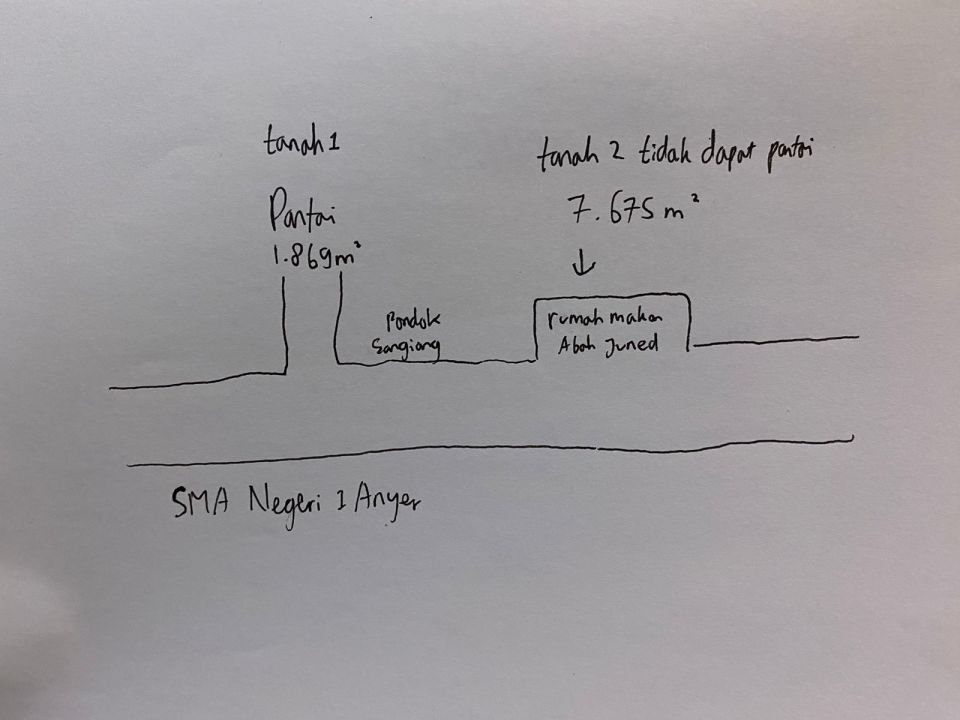 tanah 1
Pantai
1.869m²
tanah 2 tidak dapat pantai
7.675 m²
Pondok
Sangiang
rumah makan
Abah Juned
SMA Negeri 1 Anyer